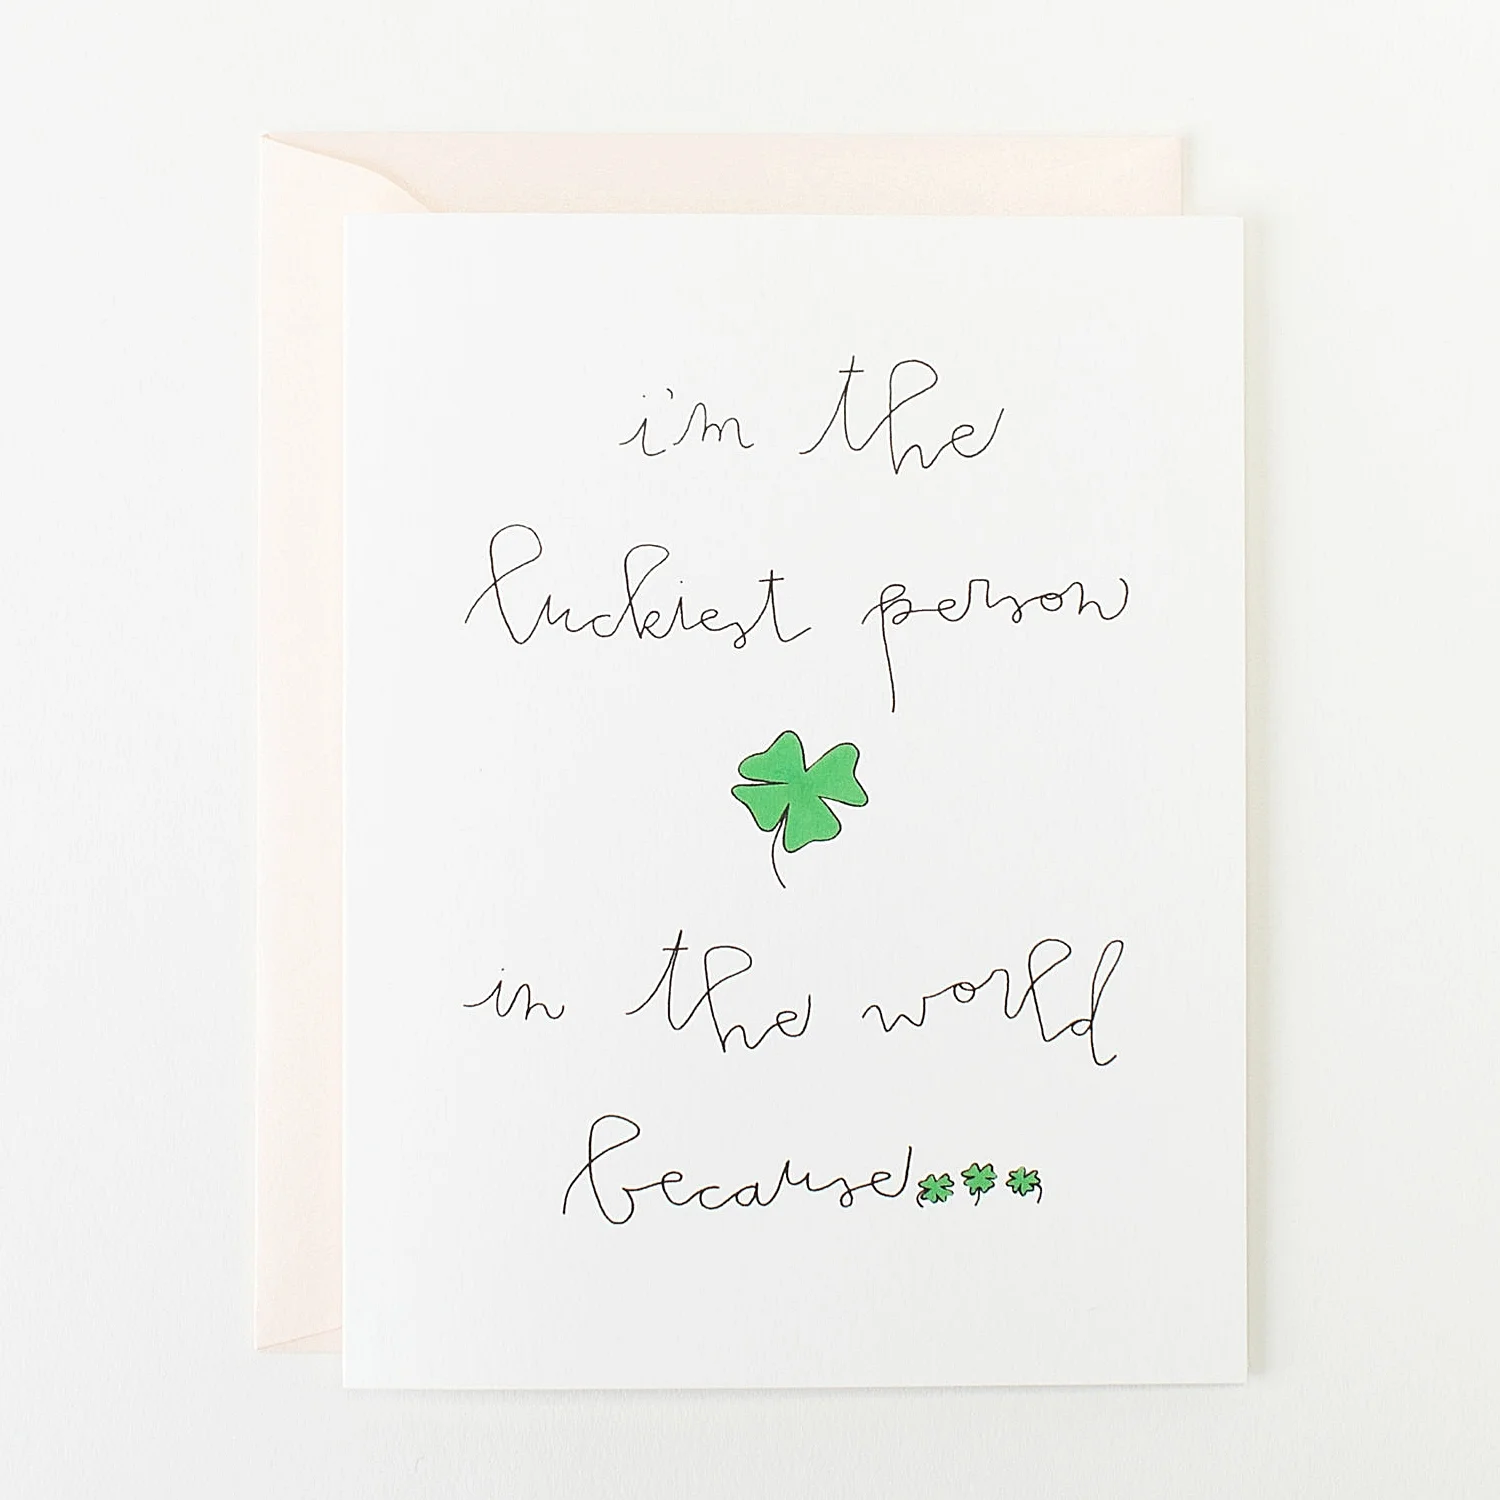 i'm the
luckiest person
in the world
because